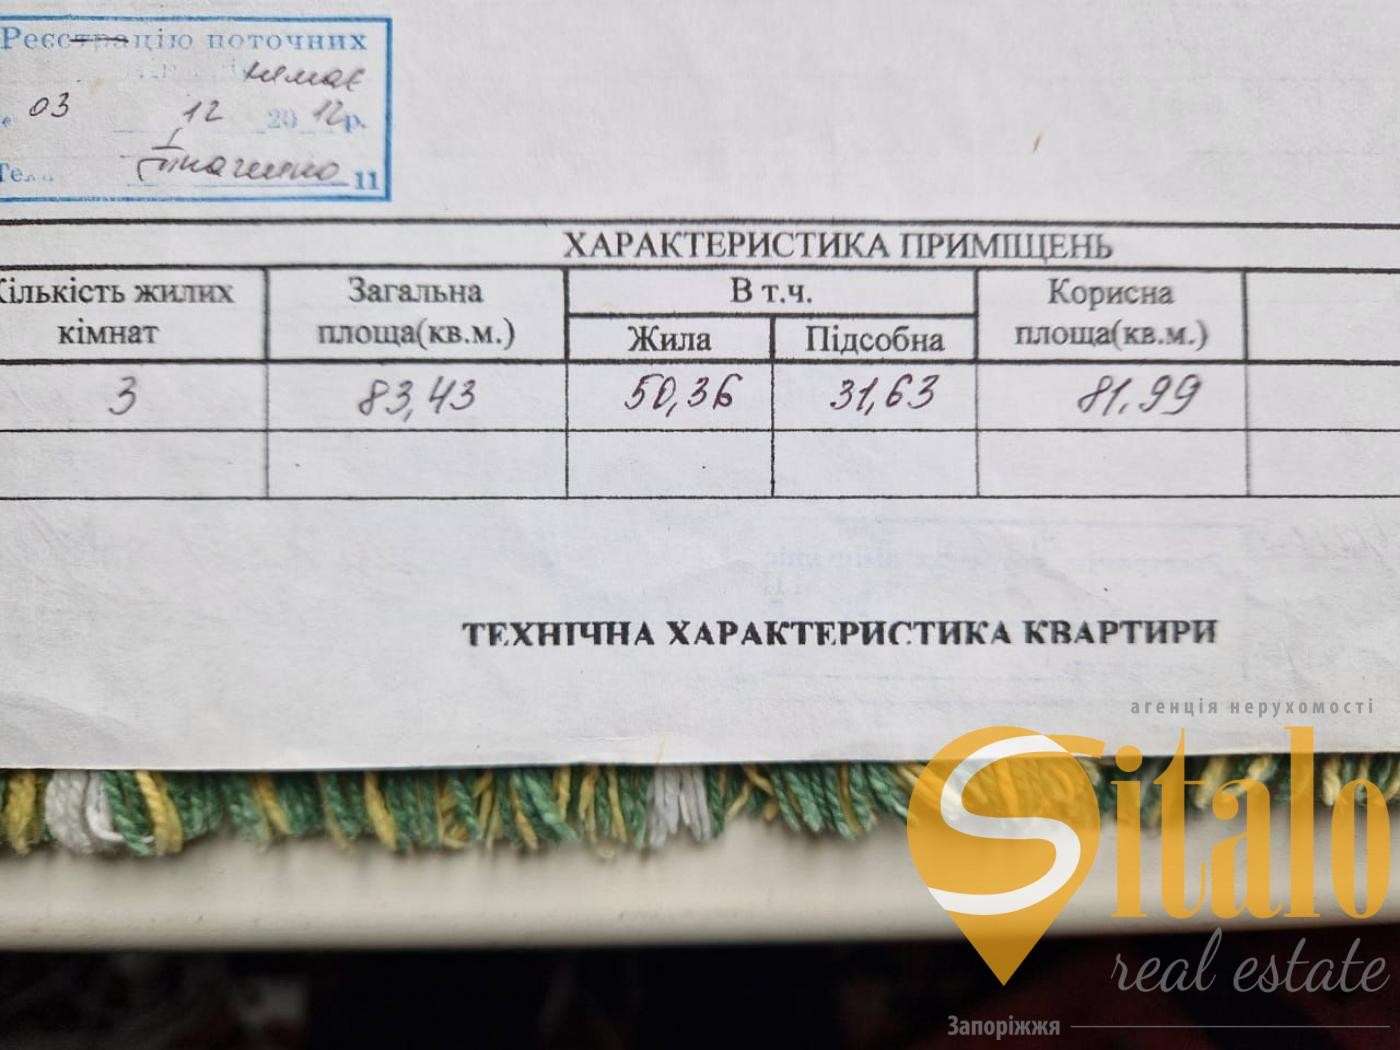 Реєстрацію поточних
немає
« 03 12 20 12р.
11
ХАРАКТЕРИСТИКА ПРИМІЩЕНЬ
Кількість жилих кімнат
Загальна площа(кв.м.)
В т.ч.
Жила
Підсобна
Корисна площа(кв.м.)
3
83,43
50,36
31,63
81,99
ТЕХНІЧНА ХАРАКТЕРИСТИКА КВАРТИРИ
агенція нерухомості
Sitalo
real estate
Запоріжжя